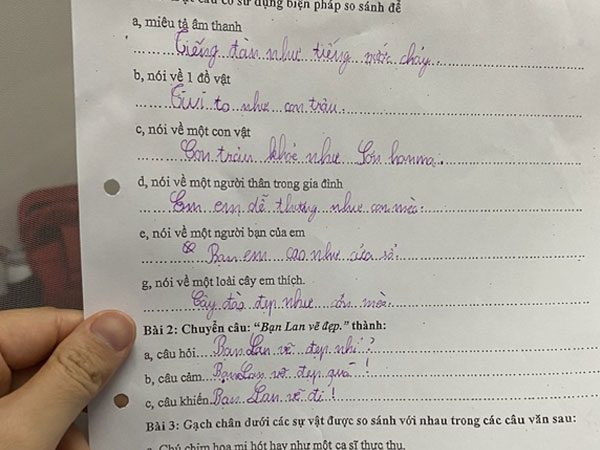 câu có sử dụng biện pháp so sánh để
a, miêu tả âm thanh
Tiếng đàn như tiếng nước chảy.
b, nói về 1 đồ vật
Tivi to như con trâu.
c, nói về một con vật
Con trâu khỏe như Sơn hanma.
d, nói về một người thân trong gia đình
Em em dễ thương như con mèo.
e, nói về một người bạn của em
Bạn em cao như cửa sổ.
g, nói về một loài cây em thích.
Cây đào đẹp như mèo.
Bài 2: Chuyển câu: “Bạn Lan vẽ đẹp.” thành:
a, câu hỏi Bạn Lan vẽ đẹp nhỉ?
b, câu cảm Bạn Lan vẽ đẹp quá!
c, câu khiến Bạn Lan vẽ đi!
Bài 3: Gạch chân dưới các sự vật được so sánh với nhau trong các câu văn sau:
Chú chim họa mi hót hay như một ca sĩ thực thụ.